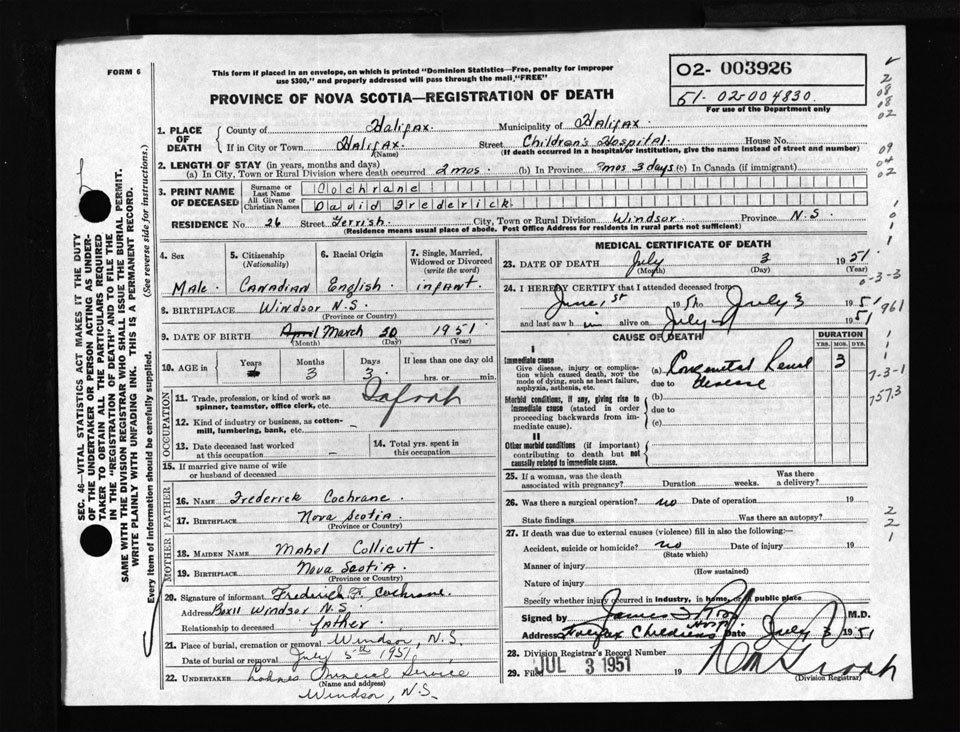 FORM 6
This form if placed in an envelope, on which is printed "Dominion Statistics—Free, penalty for improper
use $300," and properly addressed will pass through the mail "FREE"
PROVINCE OF NOVA SCOTIA—REGISTRATION OF DEATH
02- 003926
51-02-004830.
For use of the Department only
1. PLACE OF DEATH
County of Halifax. Municipality of Halifax.
If in City or Town Halifax. (Name) Street Children's Hospital. House No.
(If death occurred in a hospital or institution, give the name instead of street and number)
2. LENGTH OF STAY (in years, months and days)
(a) In City, Town or Rural Division where death occurred 2 mos. (b) In Province 3mos 3 days (c) In Canada (if immigrant)
3. PRINT NAME OF DECEASED
Surname or Last Name Cochrane
All Given or Christian Names David Frederick
RESIDENCE No. 26 Street Gerrish. City, Town or Rural Division Windsor. Province N.S.
(Residence means usual place of abode. Post Office Address for residents in rural parts not sufficient)
4. Sex Male.
5. Citizenship (Nationality) Canadian
6. Racial Origin English
7. Single, Married, Widowed or Divorced (write the word) infant.
8. BIRTHPLACE Windsor N.S. (Province or Country)
9. DATE OF BIRTH April March 30 1951.
(Month) (Day) (Year)
10. AGE in Years Months 3 Days 3. If less than one day old hrs. or min.
OCCUPATION
11. Trade, profession, or kind of work as spinner, teamster, office clerk, etc. Infant
12. Kind of industry or business, as cotton-mill, lumbering, bank, etc. -
13. Date deceased last worked at this occupation -
14. Total yrs. spent in this occupation
15. If married give name of wife or husband of deceased
FATHER
16. NAME Frederick Cochrane.
17. BIRTHPLACE Nova Scotia. (Province or Country)
MOTHER
18. MAIDEN NAME Mabel Collicutt.
19. BIRTHPLACE Nova Scotia. (Province or Country)
20. Signature of informant Frederick F. Cochrane.
Address Box 11 Windsor N.S.
Relationship to deceased father.
21. Place of burial, cremation or removal Windsor, N.S.
Date of burial or removal July 5th 1951,
22. UNDERTAKER Funeral Service
(Name and address) Windsor, N.S.
MEDICAL CERTIFICATE OF DEATH
23. DATE OF DEATH July 3 1951
(Month) (Day) (Year)
24. I HEREBY CERTIFY that I attended deceased from
June 1st 1951 to July 3 1951
and last saw him alive on July 1951
CAUSE OF DEATH
DURATION
YRS. MOS. DYS.
I
Immediate cause
Give disease, injury or complication which caused death, NOT the mode of dying, such as heart failure, asphyxia, asthenia, etc.
(a) Congenital Renal 3
due to disease
Morbid conditions, if any, giving rise to immediate cause (stated in order proceeding backwards from immediate cause).
(b)
due to
(c)
II
Other morbid conditions (if important) contributing to death but not causally related to immediate cause.
25. If a woman, was the death associated with pregnancy? Duration weeks. Was there a delivery?
26. Was there a surgical operation? no Date of operation 19
State findings Was there an autopsy?
27. If death was due to external causes (violence) fill in also the following:—
Accident, suicide or homicide? no Date of injury 19
(State which)
Manner of injury
(How sustained)
Nature of injury
Specify whether injury occurred in industry, in home, or in public place
Signed by James M.D.
Address Halifax Childrens Hosp. Date July 3 1951
28. Division Registrar's Record Number
29. Filed JUL 3 1951 19
(Division Registrar)
SEC. 46— VITAL STATISTICS ACT MAKES IT THE DUTY
OF THE UNDERTAKER OR PERSON ACTING AS UNDER-
TAKER TO OBTAIN ALL THE PARTICULARS REQUIRED
IN THE "REGISTRATION OF DEATH" AND TO FILE THE
SAME WITH THE DIVISION REGISTRAR WHO SHALL ISSUE THE BURIAL PERMIT.
WRITE PLAINLY WITH UNFADING INK. THIS IS A PERMANENT RECORD.
Every item of information should be carefully supplied. (See reverse side for instructions.)
2
08
08
02
09
04
02
1
0
1
1
0-3-3
961
1
1
1
7-3-1
757.3
2
2
1